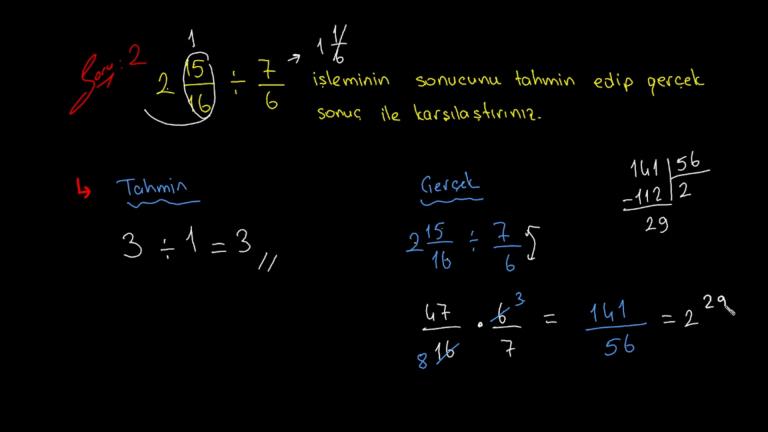 Soru: 2
1
2 15/16 ÷ 7/6 → 1 1/6 işleminin sonucunu tahmin edip gerçek
sonuç ile karşılaştırınız.
↳ Tahmin
3 ÷ 1 = 3 //
Gerçek
2 15/16 ÷ 7/6
47/16 8 · 6/7 3 = 141/56 = 2 29
141 | 56
-112 | 2
29